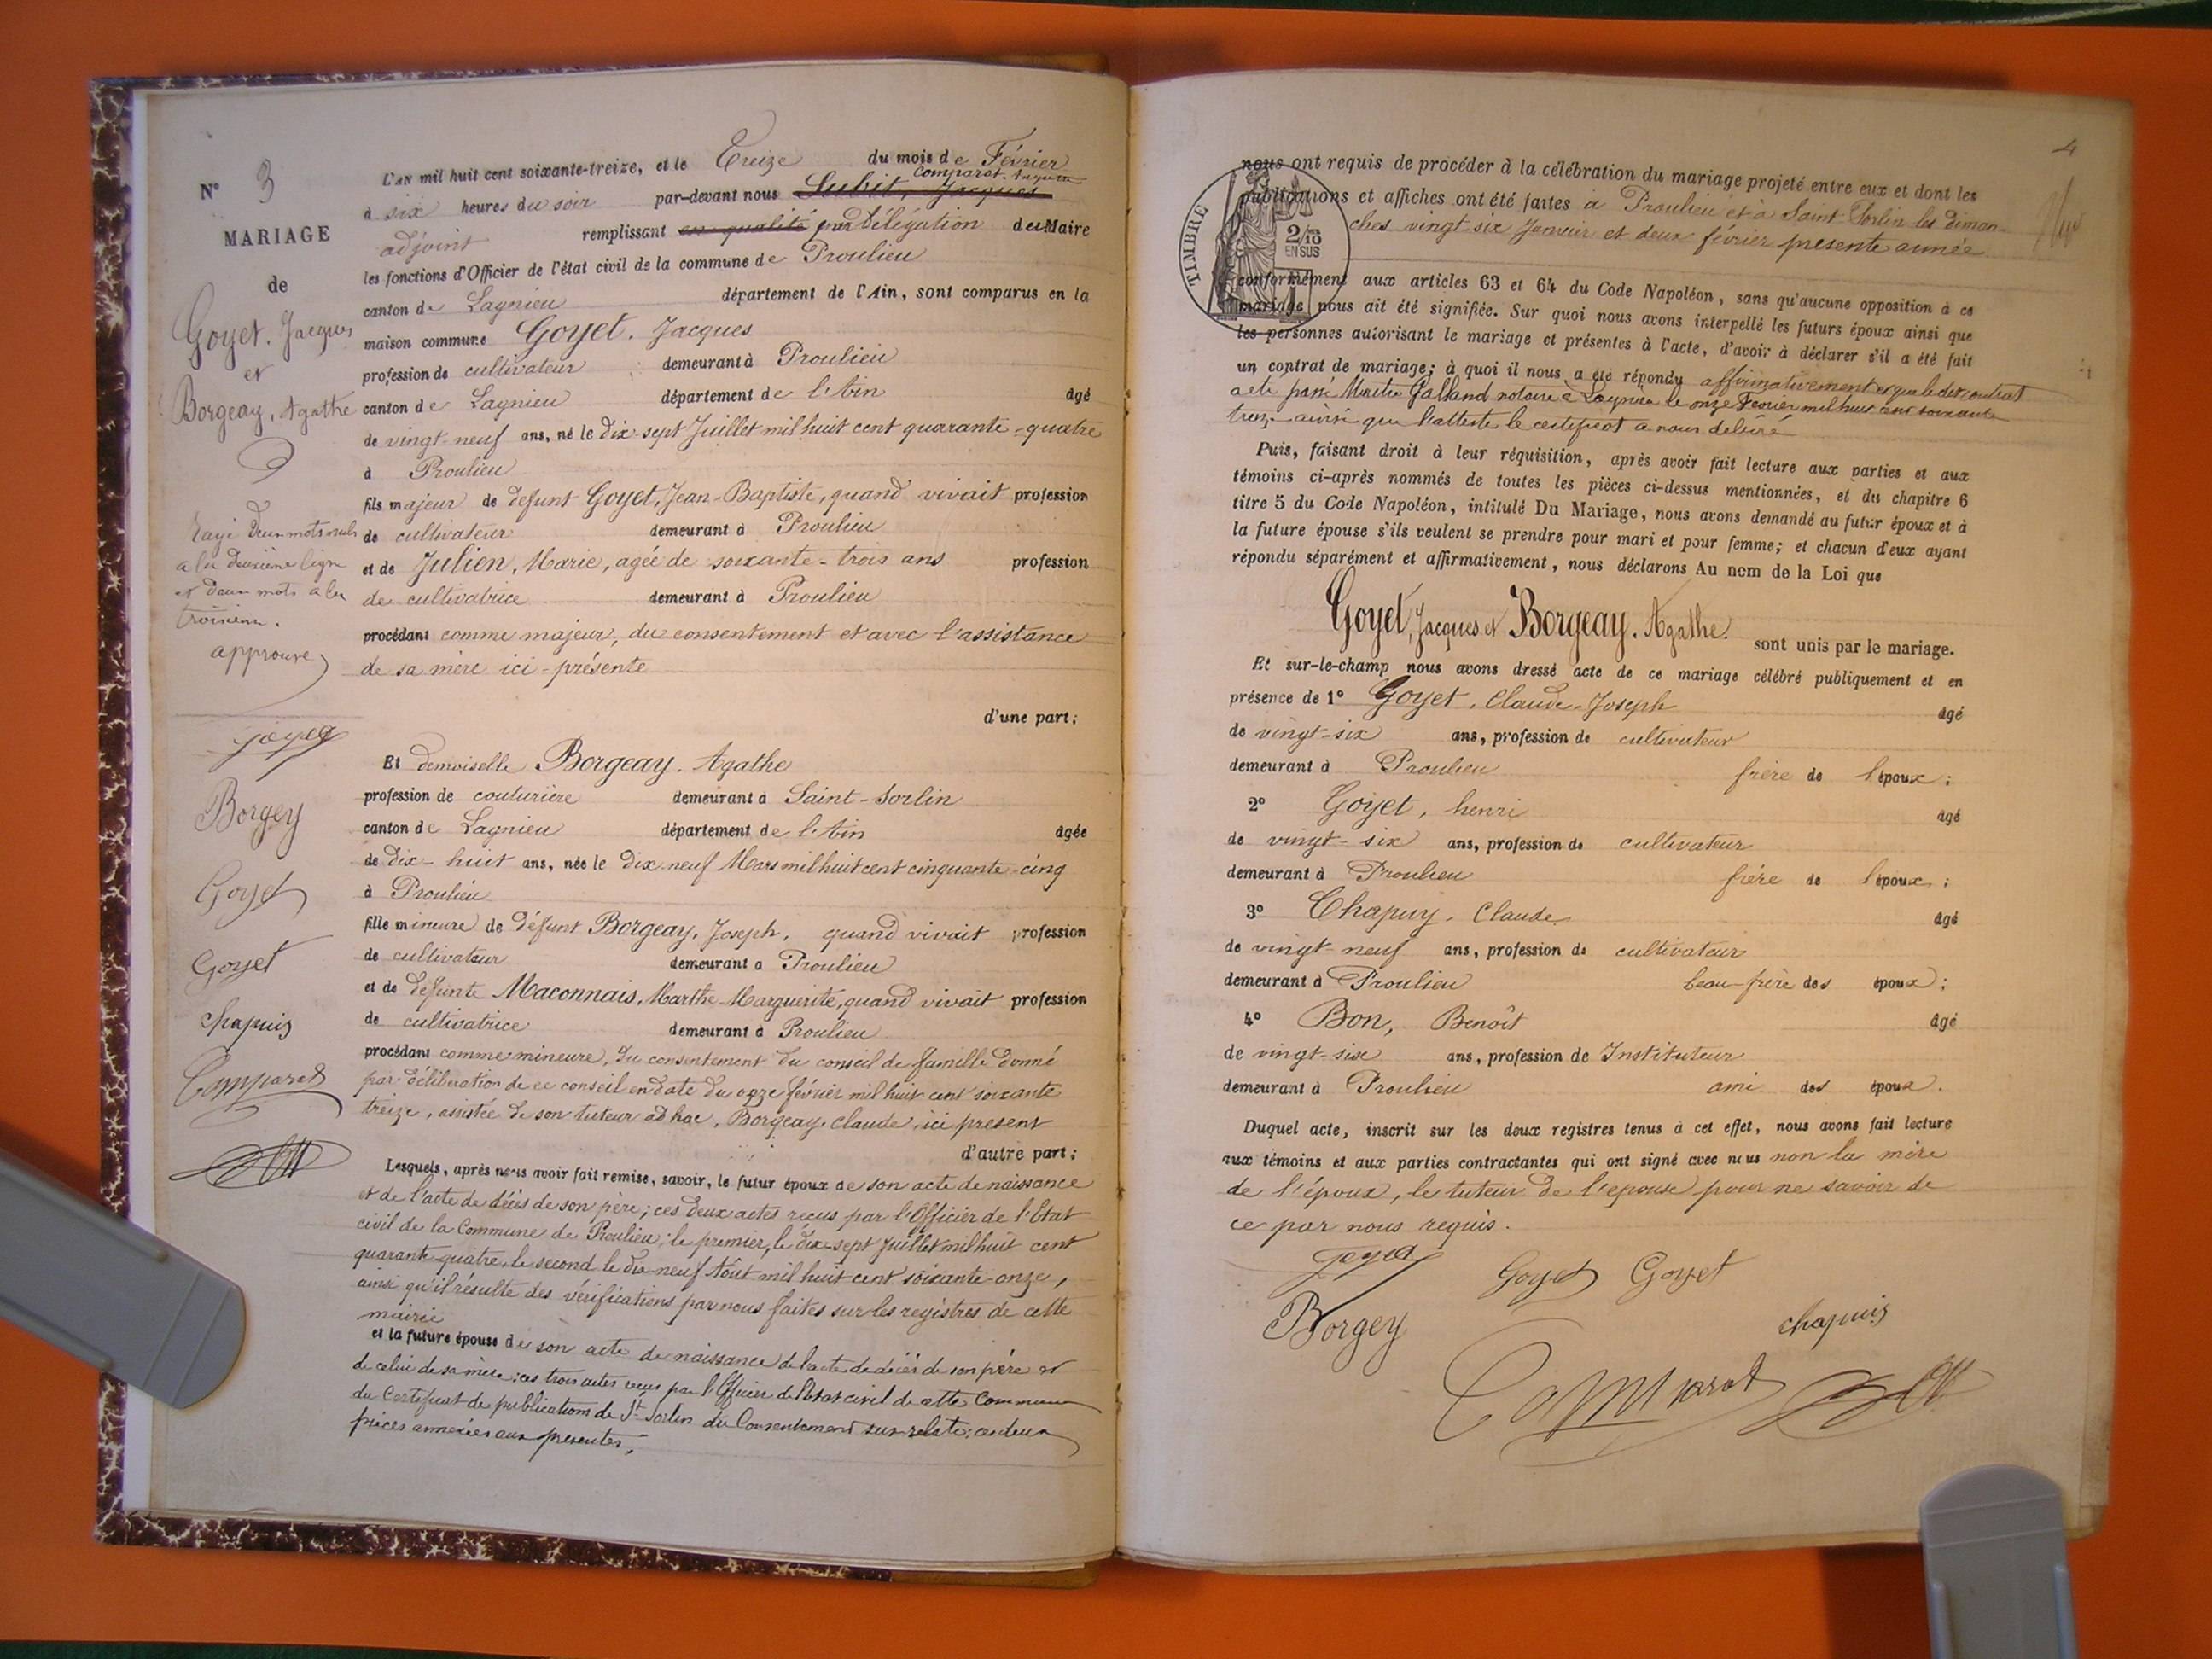 N° 3
MARIAGE
de
Goyet. Jacques
et
Borgeay, Agathe
Rayé deux mots nuls
a la deuxième ligne
et deux mots a la
troisième.
approuvé
Goyet
Borgey
Goyet
Goyet
chapuis
Comparat
L'AN mil huit cent soixante-treize, et le Treize du mois de Février
Comparat
à six heures du soir par-devant nous Subit, Jacques
adjoint remplissant en qualité par délégation du Maire
les fonctions d'Officier de l'état civil de la commune de Proulieu
canton de Lagnieu département de l'Ain, sont comparus en la
maison commune Goyet. Jacques
profession de cultivateur demeurant à Proulieu
canton de Lagnieu département de l'Ain âgé
de vingt-neuf ans, né le dix-sept Juillet mil huit cent quarante-quatre
à Proulieu
fils majeur de défunt Goyet, Jean-Baptiste, quand vivait profession
de cultivateur demeurant à Proulieu
et de Julien, Marie, agée de soixante-trois ans profession
de cultivatrice demeurant à Proulieu
procédant comme majeur, du consentement et avec l'assistance
de sa mère ici-présente
d'une part;
Et demoiselle Borgeay. Agathe
profession de couturière demeurant à Saint-Sorlin
canton de Lagnieu département de l'Ain âgée
de dix-huit ans, née le dix-neuf Mars mil huit cent cinquante-cinq
à Proulieu
fille mineure de défunt Borgeay, Joseph, quand vivait profession
de cultivateur demeurant à Proulieu
et de défunte Maconnais, Marthe-Marguerite, quand vivait profession
de cultivatrice demeurant à Proulieu
procédant comme mineure, du consentement du conseil de famille donné
par délibération de ce conseil en date du onze février mil huit cent soixante
treize, assistée de son tuteur ad hoc, Borgeay, claude, ici présent
d'autre part;
Lesquels, après nous avoir fait remise, savoir, le futur époux de son acte de naissance
et de l'acte de décès de son père; ces deux actes reçus par l'Officier de l'Etat
civil de la Commune de Proulieu; le premier, le dix-sept Juillet mil huit cent
quarante-quatre, le second le dix-neuf Août mil huit cent soixante-onze,
ainsi qu'il résulte des vérifications par nous faites sur les registres de cette
mairie
et la future épouse de son acte de naissance de l'acte de décès de son père et
de celui de sa mère; ces trois actes reçus par l'Officier de l'état civil de cette Commune
du Certificat de publications de St Sorlin du Consentement sus-relaté; ces deux
pièces annexées aux présentes;
4
TIMBRE
2/10
EN SUS
nous ont requis de procéder à la célébration du mariage projeté entre eux et dont les
publications et affiches ont été faites à Proulieu et à Saint-Sorlin les diman-
ches vingt-six Janvier et deux février présente année
conformément aux articles 63 et 64 du Code Napoléon, sans qu'aucune opposition à ce
mariage nous ait été signifiée. Sur quoi nous avons interpellé les futurs époux ainsi que
les personnes autorisant le mariage et présentes à l'acte, d'avoir à déclarer s'il a été fait
un contrat de mariage; à quoi il nous a été répondu affirmativement et que le dit contrat
a été passé Maitre Galland notaire à Lagnieu le onze Fevrier mil huit cent soixante
treize ainsi que l'atteste le certificat a nous délivré
Puis, faisant droit à leur réquisition, après avoir fait lecture aux parties et aux
témoins ci-après nommés de toutes les pièces ci-dessus mentionnées, et du chapitre 6
titre 5 du Code Napoléon, intitulé Du Mariage, nous avons demandé au futur époux et à
la future épouse s'ils veulent se prendre pour mari et pour femme; et chacun d'eux ayant
répondu séparément et affirmativement, nous déclarons Au nom de la Loi que
Goyet, Jacques et Borgeay. Agathe.
sont unis par le mariage.
Et sur-le-champ nous avons dressé acte de ce mariage célébré publiquement et en
présence de 1° Goyet, Claude-Joseph âgé
de vingt-six ans, profession de cultivateur
demeurant à Proulieu frère de l'époux;
2° Goyet, henri âgé
de vingt-six ans, profession de cultivateur
demeurant à Proulieu frère de l'époux;
3° Chapuy, Claude âgé
de vingt-neuf ans, profession de cultivateur
demeurant à Proulieu beau-frère des époux;
4° Bon, Benoît âgé
de vingt-six ans, profession de Instituteur
demeurant à Proulieu ami des époux.
Duquel acte, inscrit sur les deux registres tenus à cet effet, nous avons fait lecture
aux témoins et aux parties contractantes qui ont signé avec nous non la mère
de l'époux, le tuteur de l'épouse pour ne savoir de
ce par nous requis.
Goyet Goyet Goyet
Borgey chapuis
Comparat